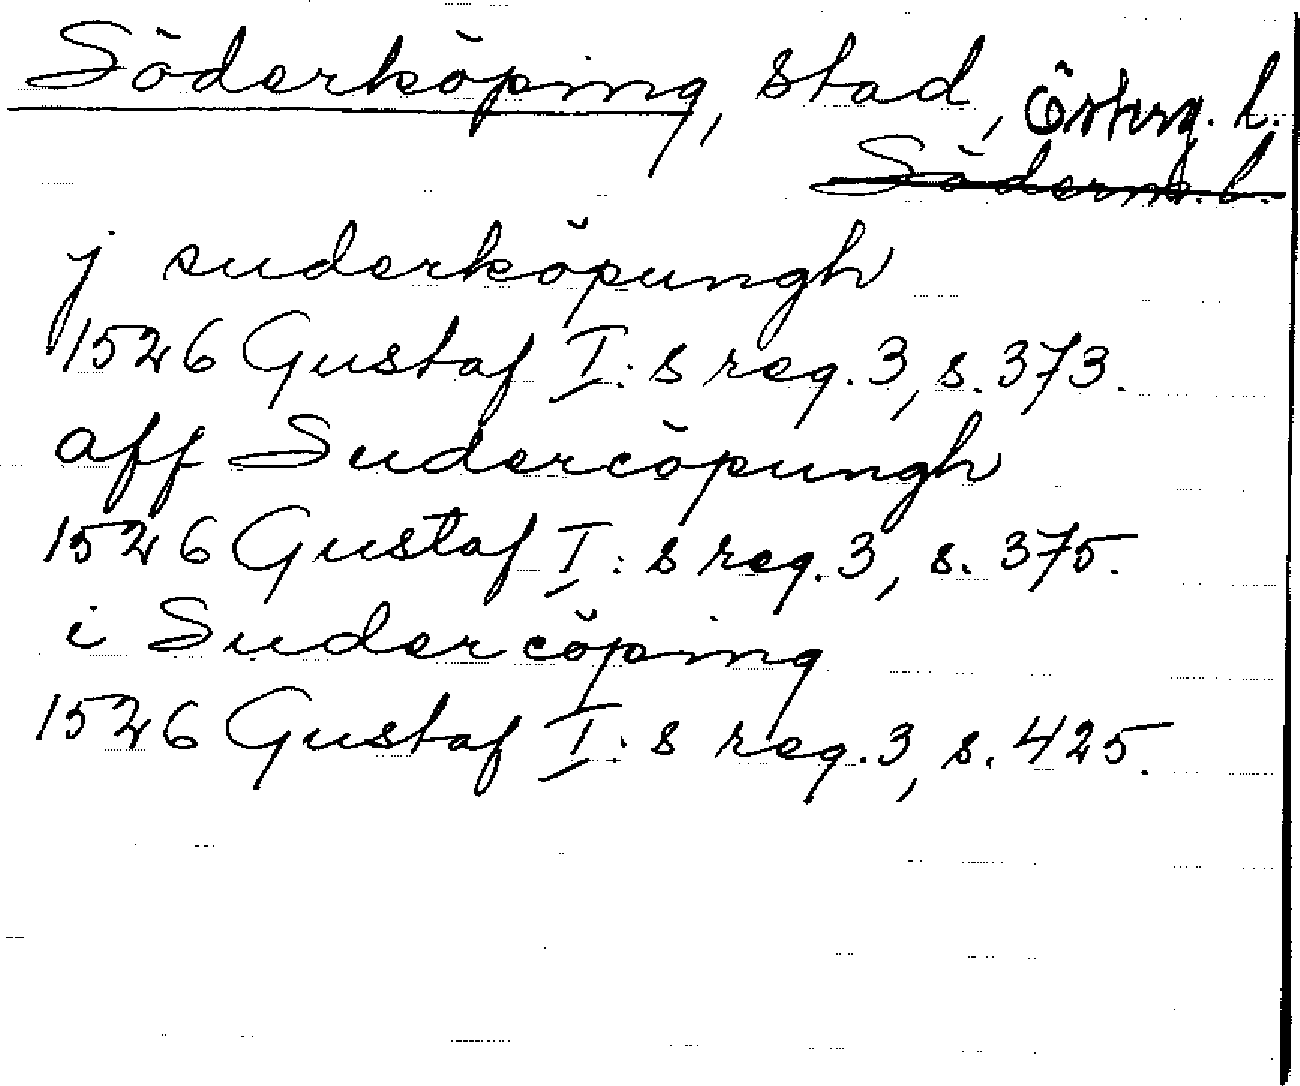 Söderköping, stad, Österg. l.
Söderml. l.
j suderköpungh
1526 Gustaf I:s reg. 3, s. 373.
aff Sudercöpungh
1526 Gustaf I:s reg. 3, s. 375.
i Sudercöping
1526 Gustaf I:s reg. 3, s. 425.